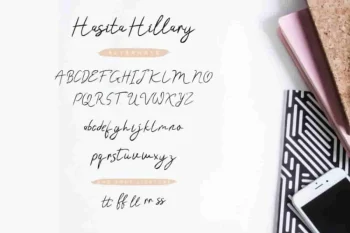 Hasita Hillary
ALPHABETS
ABCDEFGHIJKLMNO
PQRSTUVWXYZ
abcdefghijklmno
pqrstuvwxyz
tt ff ll rr ss